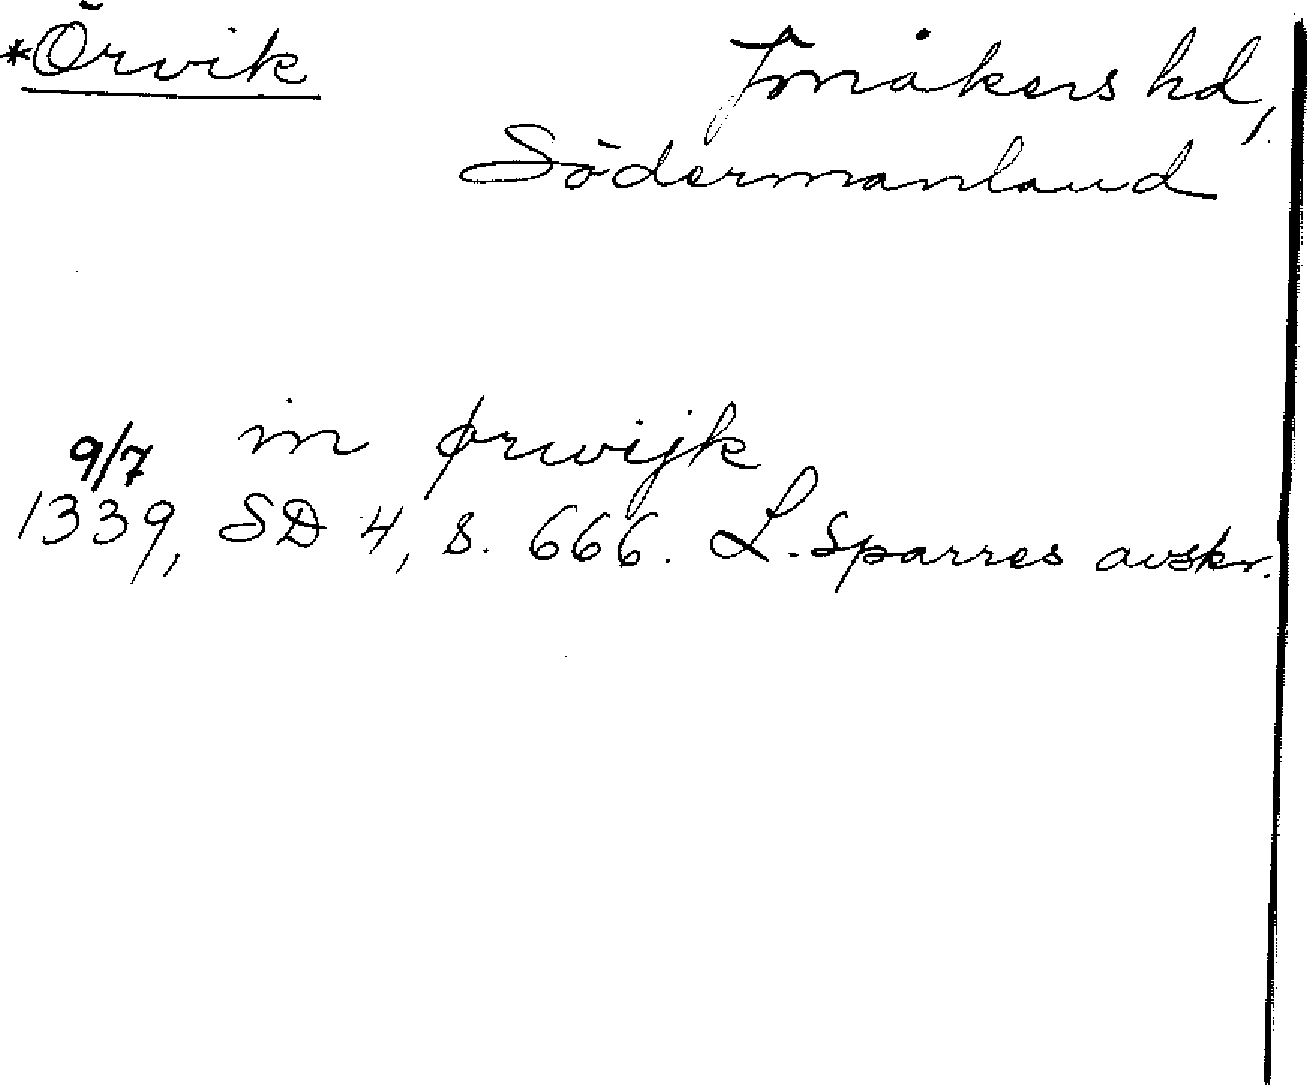 *Örvik Jönåkers hd,
Södermanland
in ørwijk
9/7
1339, SD 4, s. 666. L. Sparres avskr.